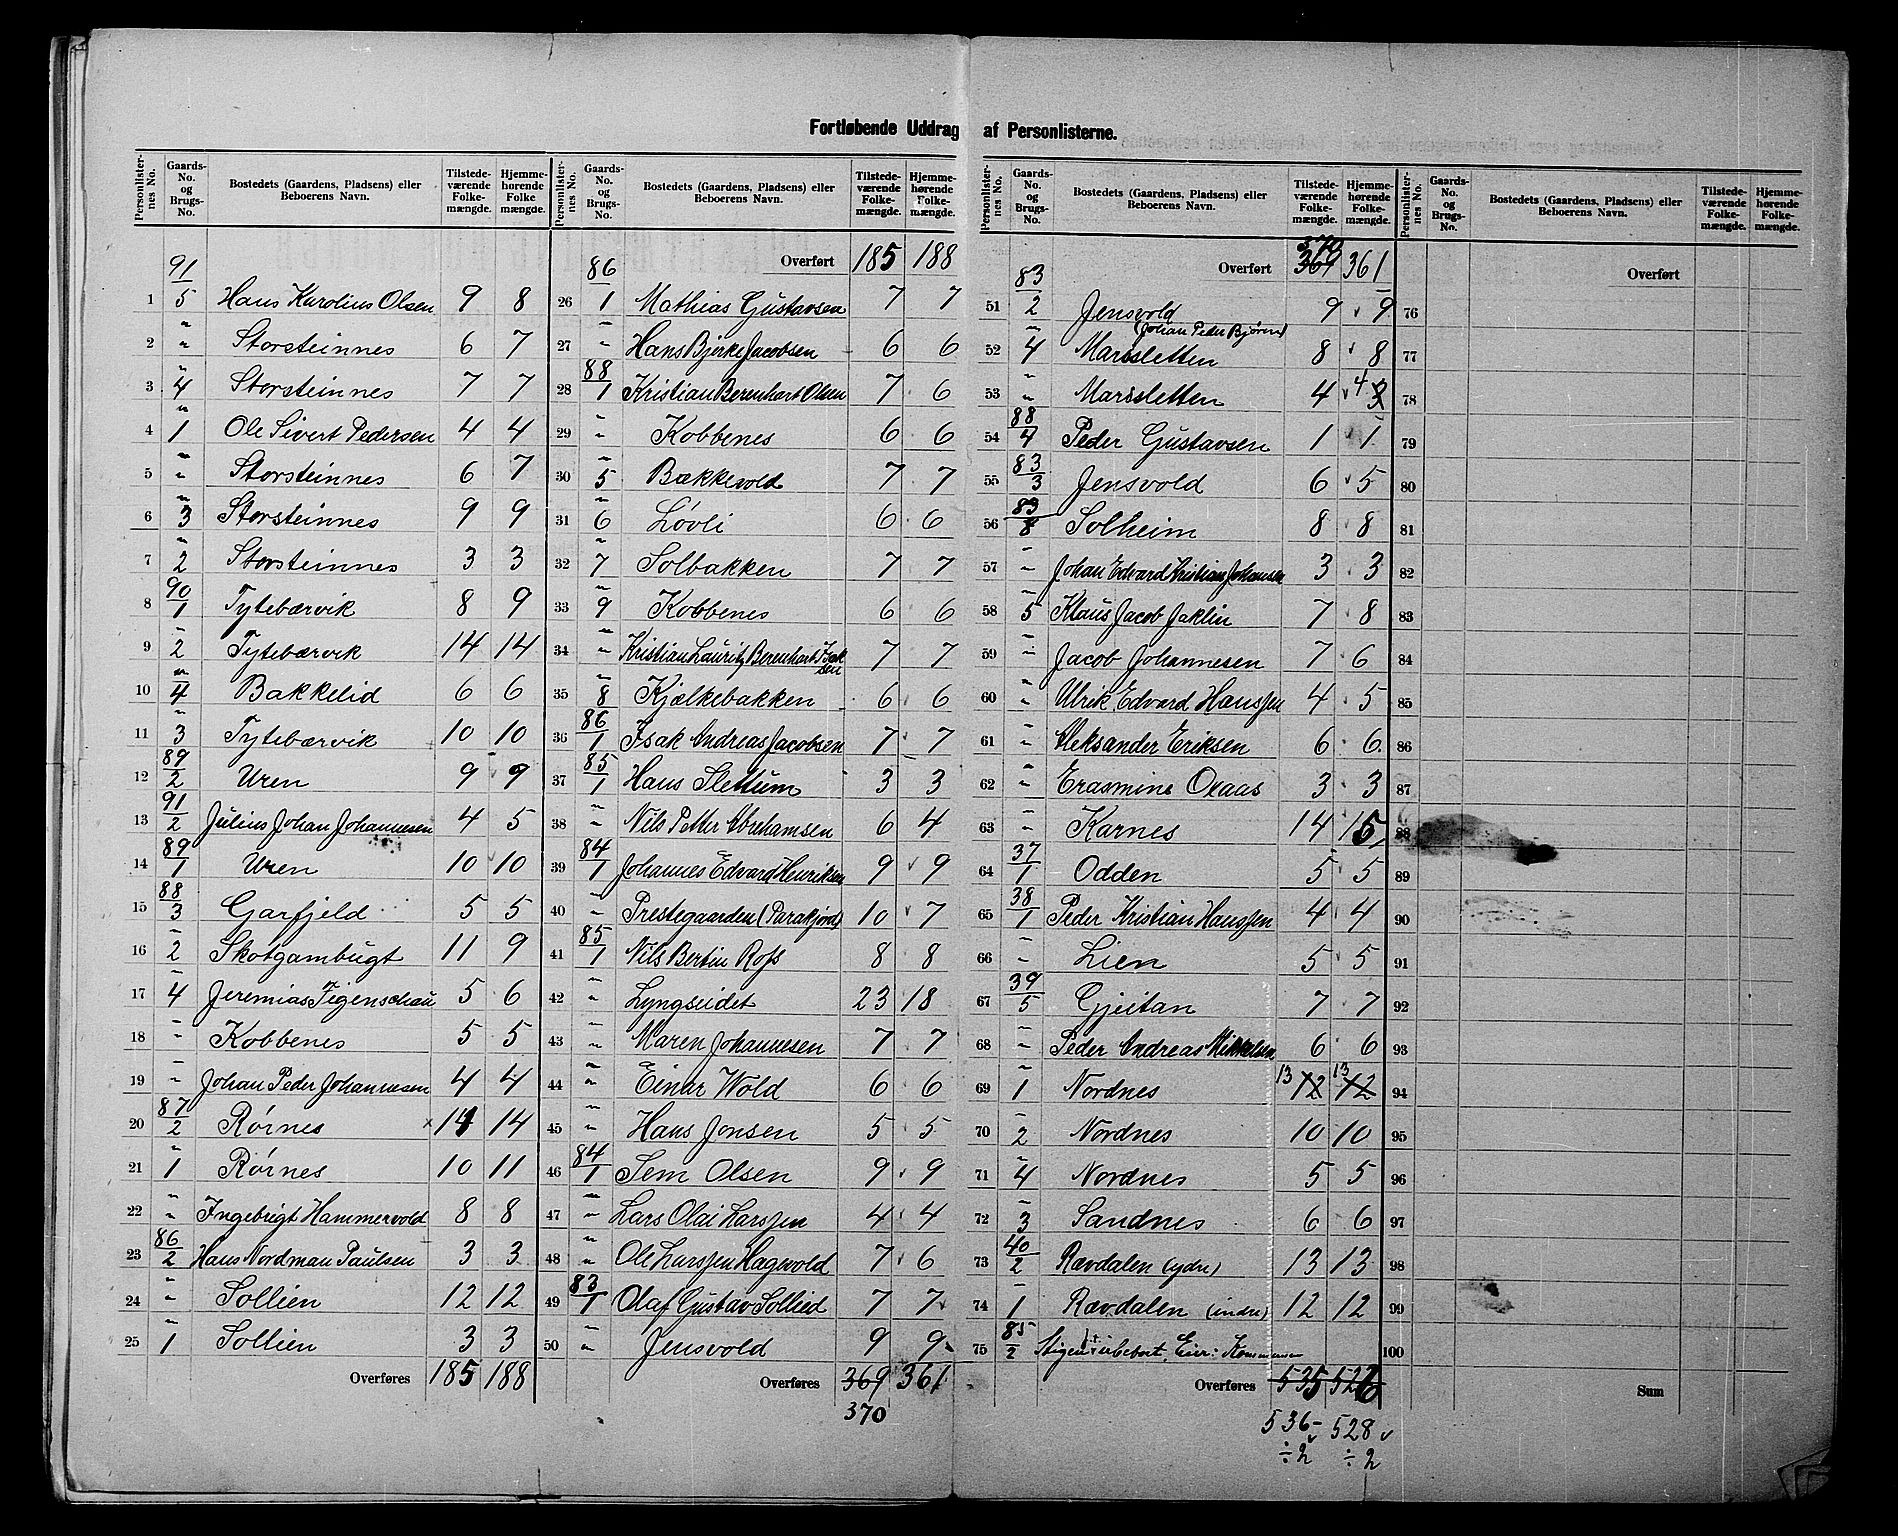 Fortløbende Uddrag af Personlisterne.
Personlister-nes No. | Gaards-No. og Brugs-No. | Bostedets (Gaardens, Pladsens) eller Beboerens Navn. | Tilstede-værende Folke-mængde. | Hjemme-hørende Folke mængde.
1 | 91/5 | Hans Karolius Olsen | 9 | 8
2 | " " | Storsteinnes | 6 | 7
3 | "/4 | Storsteinnes | 7 | 7
4 | "/1 | Ole Sivert Pedersen | 4 | 4
5 | " " | Storsteinnes | 6 | 7
6 | "/3 | Storsteinnes | 9 | 9
7 | "/2 | Storsteinnes | 3 | 3
8 | 90/1 | Tytebærvik | 8 | 9
9 | "/2 | Tytebærvik | 14 | 14
10 | "/4 | Bakkelid | 6 | 6
11 | "/3 | Tytebærvik | 10 | 10
12 | 89/2 | Uren | 9 | 9
13 | 91/2 | Julius Johan Johannesen | 4 | 5
14 | 89/1 | Uren | 10 | 10
15 | 88/3 | Garfjeld | 5 | 5
16 | "/2 | Skotgambugt | 11 | 9
17 | "/4 | Jeremias Figenschau | 5 | 6
18 | " | Kobbenes | 5 | 5
19 | " | Johan Peder Johannesen | 4 | 4
20 | 87/2 | Rørnes | × 14 | 14
21 | "/1 | Rørnes | 10 | 11
22 | " " | Ingebrigt Hammervold | 8 | 8
23 | 86/2 | Hans Nordman Paulsen | 3 | 3
24 | " | Sollien | 12 | 12
25 | 1 | Sollien | 3 | 3
Overføres 185 188
Personlister-nes No. | Gaards-No. og Brugs-No. | Bostedets (Gaardens, Pladsens) eller Beboerens Navn. | Tilstede-værende Folke-mængde. | Hjemme-hørende Folke-mængde.
Overført 185 188
26 | 86/1 | Mathias Gustavsen | 7 | 7
27 | " | Hans Bjerke Jacobsen | 6 | 6
28 | 88/1 | Kristian Berenhart Olsen | 7 | 6
29 | " " | Kobbenes | 6 | 6
30 | "/5 | Bækkevold | 7 | 7
31 | "/6 | Løvli | 6 | 6
32 | "/7 | Solbakken | 7 | 7
33 | "/9 | Kobbenes | 6 | 6
34 | " " | Kristian Lauritz Berenhart Isaksen | 7 | 7
35 | "/8 | Kjælkebakken | 6 | 6
36 | 86/1 | Isak Andreas Jacobsen | 7 | 7
37 | 85/1 | Hans Slettum | 3 | 3
38 | " " | Nils Petter Abrahamsen | 6 | 4
39 | 84/1 | Johannes Edvard Henriksen | 9 | 9
40 | " | Prestegaarden (Parakjord) | 10 | 7
41 | 85/1 | Nils Bertin Rofs | 8 | 8
42 | " " | Lyngseidet | 23 | 18
43 | " " | Maren Johannesen | 7 | 7
44 | " " | Einar Wold | 6 | 6
45 | " " | Hans Jonsen | 5 | 5
46 | 84/1 | Sem Olsen | 9 | 9
47 | " " | Lars Olai Larssen | 4 | 4
48 | " " | Ole Larssen Hagevold | 7 | 6
49 | 83/1 | Olaf Gustav Sollied | 7 | 7
50 | " " | Jensvold | 9 | 9
Overføres 369 361
370
Personlister-nes No. | Gaards-No. og Brugs-No. | Bostedets (Gaardens, Pladsens) eller Beboerens Navn. | Tilstede-værende Folke-mængde. | Hjemme-hørende Folke-mængde.
370
Overført 369 361
51 | 83/2 | Jensvold | 9 | 9
(Johan Peder Bjørn)
52 | "/4 | Marsletten | 8 | 8
53 | " " | Marsletten | 4 | 4 3
54 | 88/4 | Peder Gustavsen | 1 | 1
55 | 83/3 | Jensvold | 6 | 5
56 | 83/8 | Solheim | 8 | 8
57 | " " | Johan Edvard Kristian Johansen | 3 | 3
58 | 5 | Klaus Jacob Jaklin | 7 | 8
59 | " " | Jacob Johannesen | 7 | 6
60 | " " | Ulrik Edvard Hanssen | 4 | 5
61 | " " | Aleksander Eriksen | 6 | 6
62 | " " | Erasmine Oxaas | 3 | 3
63 | " " | Karnes | 14 | 15
64 | 37/1 | Odden | 5 | 5
65 | 38/1 | Peder Kristian Hanssen | 4 | 4
66 | " | Lien | 5 | 5
67 | 39/5 | Gjeitan | 7 | 7
68 | " | Peder Andreas Mikkelsen | 6 | 6
69 | 1 | Nordnes | 13 12 | 13 12
70 | "/2 | Nordnes | 10 | 10
71 | "/4 | Nordnes | 5 | 5
72 | "/3 | Sandnes | 6 | 6
73 | 40/2 | Rævdalen (ydre) | 13 | 13
74 | "/1 | Rævdalen (indre) | 12 | 12
75 | 85/2 | Stigen ubebort. Eier: Kommunen
Overføres 535 526
536 528
÷2 ÷2
Personlister-nes No. | Gaards-No. og Brugs-No. | Bostedets (Gaardens, Pladsens) eller Beboerens Navn. | Tilstede-værende Folke-mængde. | Hjemme-hørende Folke-mængde.
Overført
76
77
78
79
80
81
82
83
84
85
86
87
88
89
90
91
92
93
94
95
96
97
98
99
100
Sum